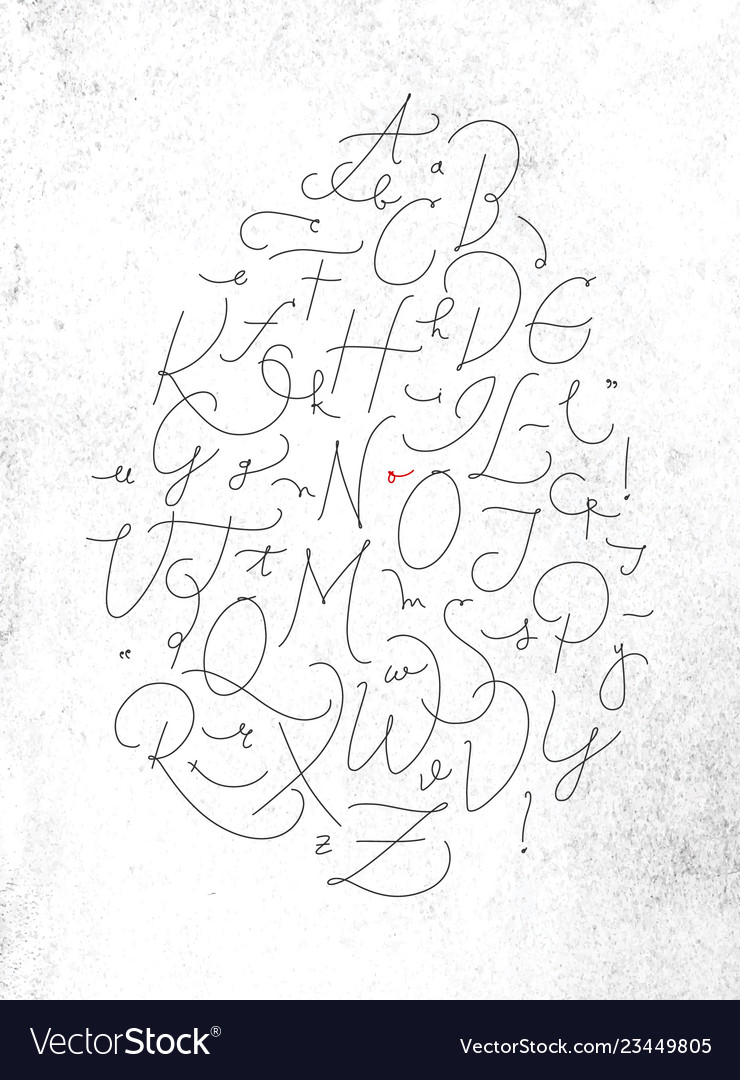 A
a B
b
c C
d
e F D E
K f H h
G k i I L l ”
u g n N o O !
p
U T t J j
M m P
“ q Q w S s y
R r X W v V Y
x
z Z ?
VectorStock®
VectorStock.com/23449805